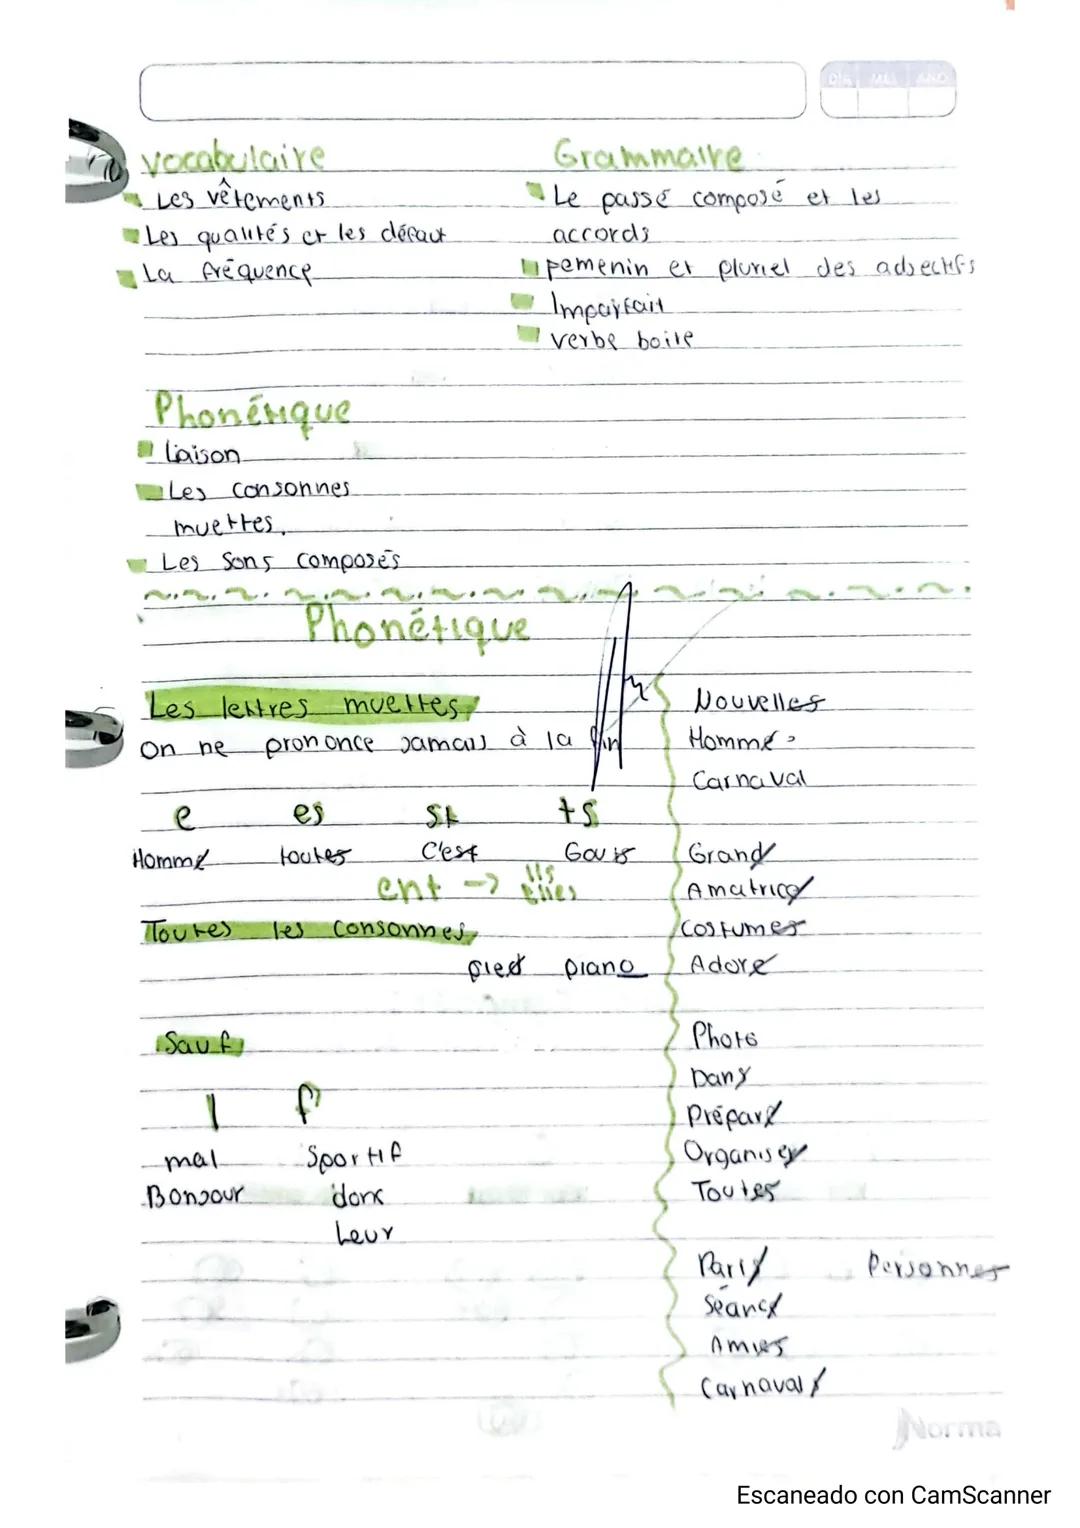 DIA MES AÑO
Vocabulaire
Les vêtements
Les qualités et les défaut
La fréquence
Grammaire
Le passé composé et les
accords
Femenin et pluriel des adjectifs
Imparfait
verbe boire
Phonétique
Liaison
Les consonnes
muettes.
Les Sons composés
Phonétique
Les lettres muettes
On ne prononce jamais à la fin
e es st ts
Homme toutes C'est
ent -> Ils
Elles
Toutes les consonnes
pied piano
Sauf
l f
mal Sportif
Bonjour donc
Leur
Nouvelles
Homme
Carnaval
Grand
Amatrice
Costumes
Adore
Photo
Dans
Prépare
Organiser
Toutes
Paris Personnes
Séance
Amies
Carnavals
Norma
Escaneado con CamScanner